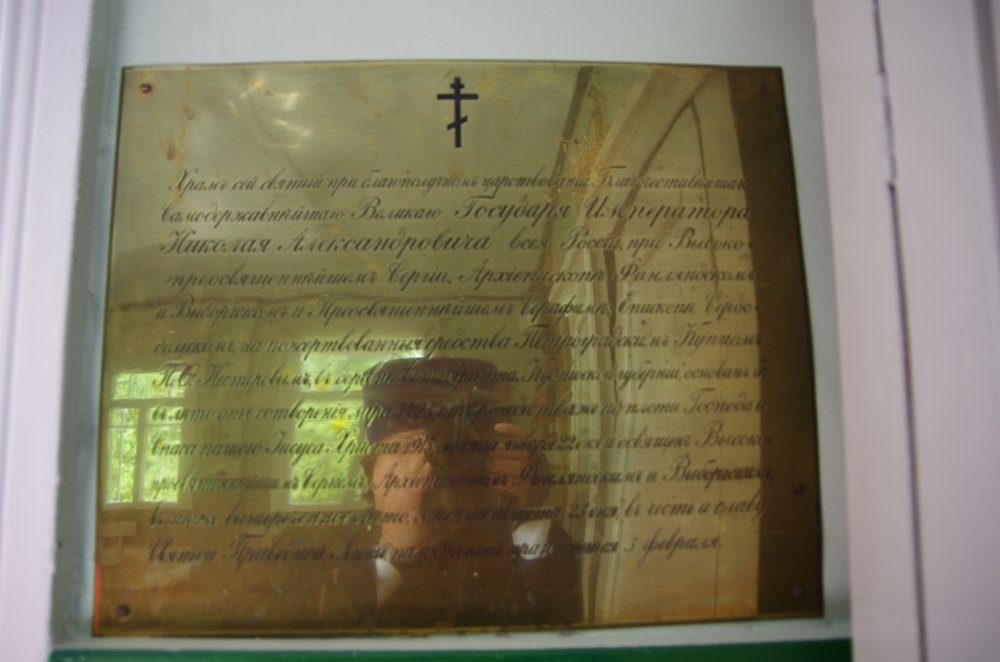 Храмъ сей святый при благополучномъ царствованіи Благочестивѣйшаго
Самодержавнѣйшаго Великаго Государя Императора
Николая Александровича всея Россіи, при Высоко-
преосвященнѣйшемъ Сергіи, Архіепископѣ Финляндскомъ
и Выборгскомъ и Преосвященнѣйшемъ Серафимѣ, Епископѣ Сердо-
больскомъ, на пожертвованныя средства Петроградскимъ Купцомъ
П. О. Нестеровымъ, въ Куопіоской губерніи, основанъ
въ лѣто отъ сотворенія міра отъ рождества же по плоти Господа и
Спаса нашего Іисуса Христа мѣсяца января 22 дня и освященъ Высоко-
преосвященнѣйшимъ Сергіемъ, Архіепископомъ Финляндскимъ и Выборгскимъ,
въ тоже вышереченное лѣто, мѣсяца августа 23 дня, въ честь и славу
Святой Праведной Анны память коей празднуется 3 февраля.